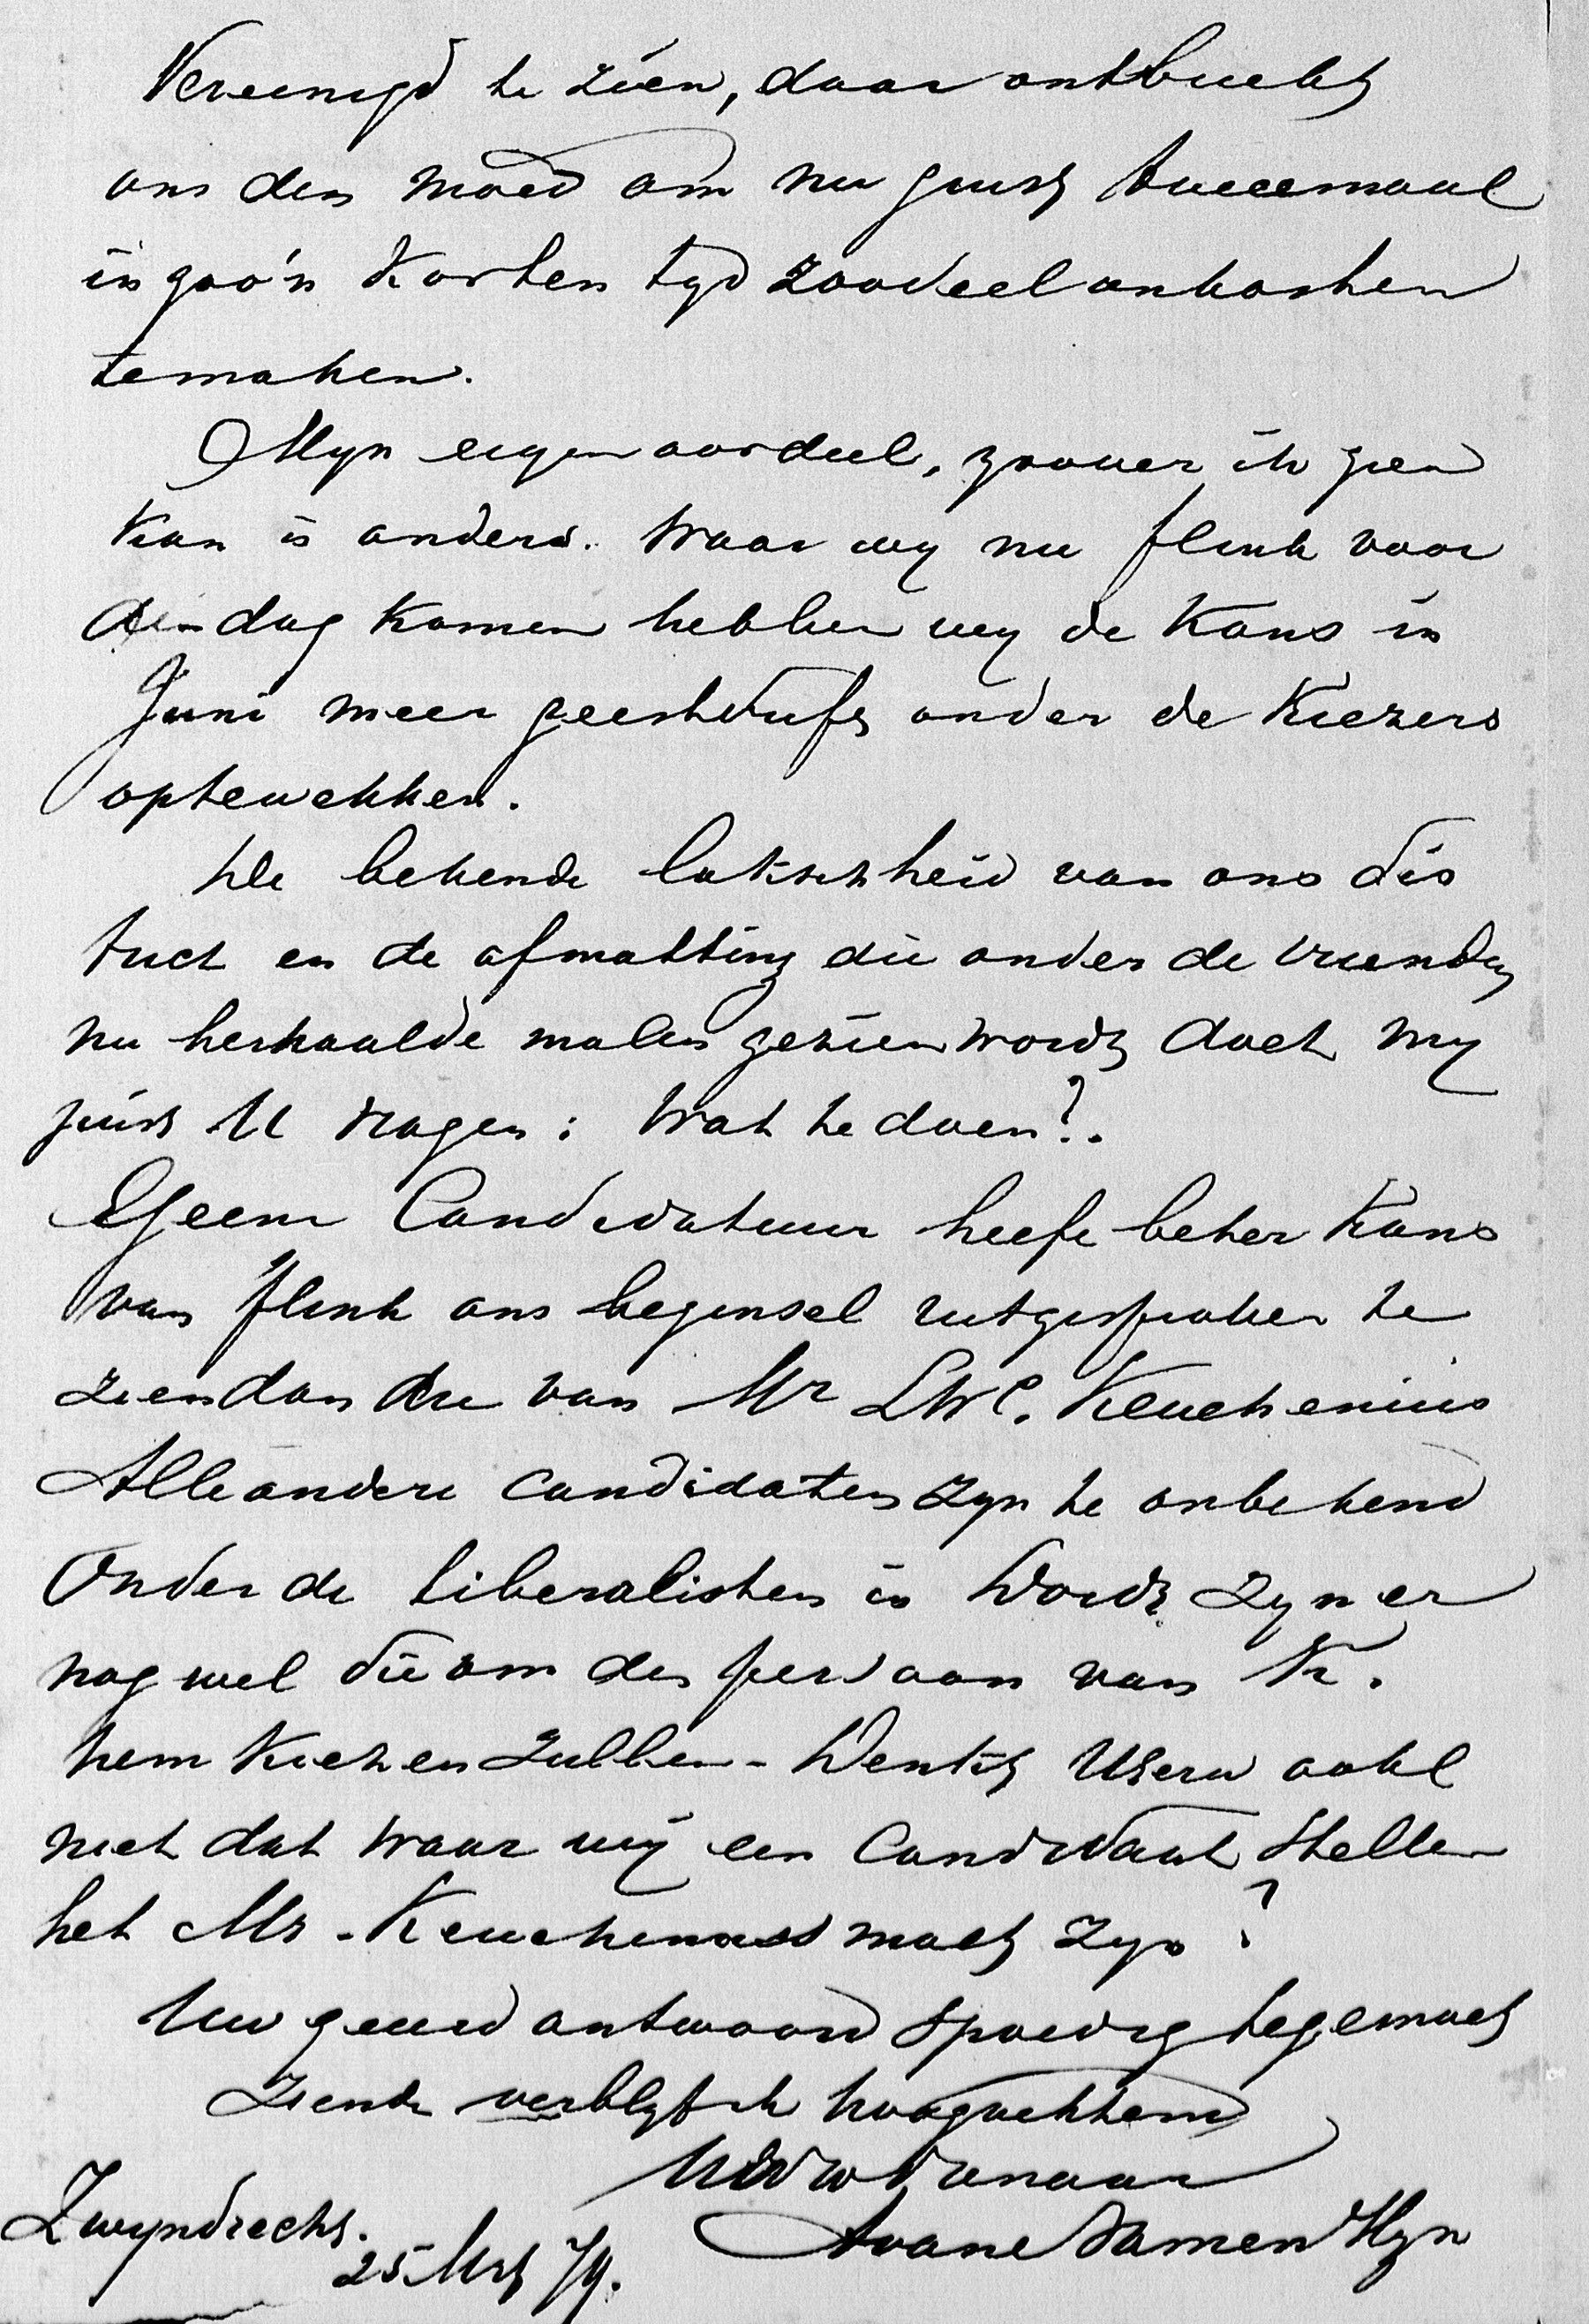 Vereenigd te zien, daar ontbreekt
ons den moed om nu juist tweemaal
in zoo'n korten tyd zooveel onkosten
temaken.
Myn eigen oordeel, zoover ik zien
kan is anders. Waar wy nu flink voor
den dag komen hebben wy de kans in
Juni meer geestdrift onder de Kiezers
optewekken.
De bekende laksheid van ons dis
trict en de afmatting die onder de vrienden
nu herhaalde malen gezien wordt doet my
juist U vragen: Wat te doen?.
Geene Candidatuur heeft beter kans
van flink ons beginsel uitgesproken te
zien dan die van Mr LWC. Keuchenius
Alle andere candidaten zyn te onbekend
Onder de liberalisten in Dordt zyn er
nog wel die om den persoon van K.
hem kiezen zullen - Denkt UEerw ook
niet dat waar wij een Candidaat stellen
het Mr. Keuchenius moet zyn?
Uw geeerd antwoord spoedig tegemoet
Ziende verblyf ik hoogachtend
UEDw Dienaar
Zwyndrecht.
25 Mrt 79.